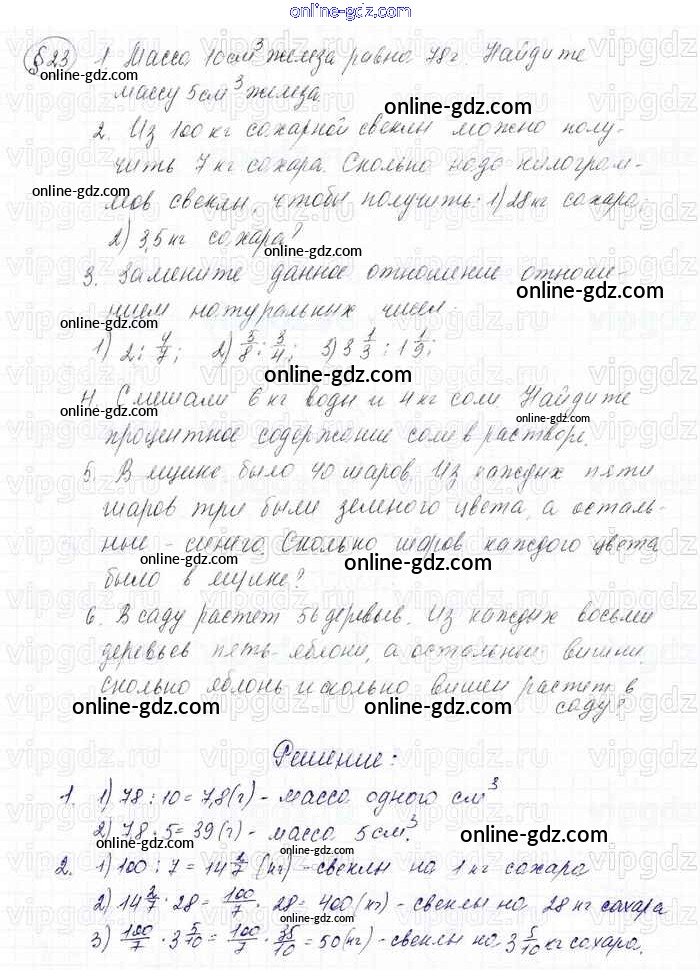 online-gdz.com
§ 23 1. Масса 10 см³ железа равна 78 г. Найдите
online-gdz.com
массу 5 см³ железа.
online-gdz.com
2. Из 100 кг сахарной свеклы можно полу-
чить 7 кг сахара. Сколько надо килограм-
online-gdz.com
мов свеклы, чтобы получить: 1) 28 кг сахара;
2) 3,5 кг сахара?
online-gdz.com
3. Замените данное отношение отноше-
online-gdz.com
нием натуральных чисел:
1) 2 : 4/7; 2) 3/8 : 3/4; 3) 3 1/3 : 1 1/9;
online-gdz.com
4. Смешали 6 кг воды и 4 кг соли. Найдите
online-gdz.com online-gdz.com
процентное содержание соли в растворе.
5. В ящике было 40 шаров. Из каждых пяти
шаров три были зеленого цвета, а осталь-
ные - синего. Сколько шаров каждого цвета
online-gdz.com online-gdz.com
было в ящике?
6. В саду растет 56 деревьев. Из каждых восьми
деревьев пять - яблони, а остальные вишни.
Сколько яблонь и сколько вишен растет в
саду?
online-gdz.com online-gdz.com
Решение:
1. 1) 78 : 10 = 7,8 (г) - масса одного см³
online-gdz.com
2) 78 · 5 = 39 (г) - масса 5 см³.
online-gdz.com
2. 1) 100 : 7 = 14 2/7 (кг) - свеклы на 1 кг сахара
online-gdz.com
2) 14 2/7 · 28 = 100/7 · 28 = 400 (кг) - свеклы на 28 кг сахара
online-gdz.com
3) 100/7 · 3 5/10 = 100/7 · 35/10 = 50 (кг) - свеклы на 3 5/10 кг сахара.
online-gdz.com